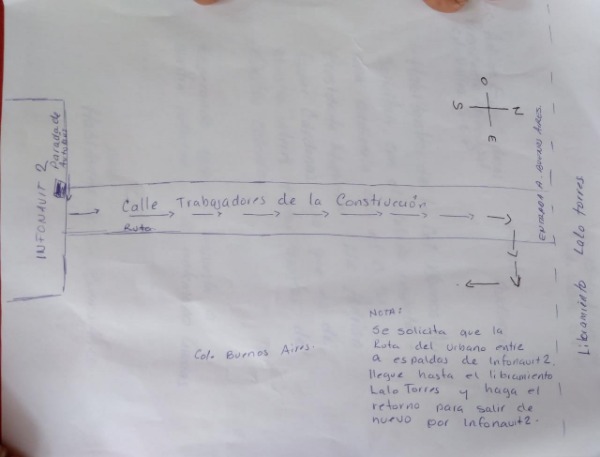 O
S N
E
INFONAVIT 2
Parada de
Autobus
Calle Trabajadores de la Construcción
Ruta
ENTRADA A. BUENOS AIRES
Libramiento Lalo Torres
Colo Buenos Aires.
NOTA:
Se solicita que la
Ruta del urbano entre
a espaldas de Infonavit 2.
llegue hasta el libramiento
Lalo Torres y haga el
retorno para salir de
nuevo por Infonavit 2.